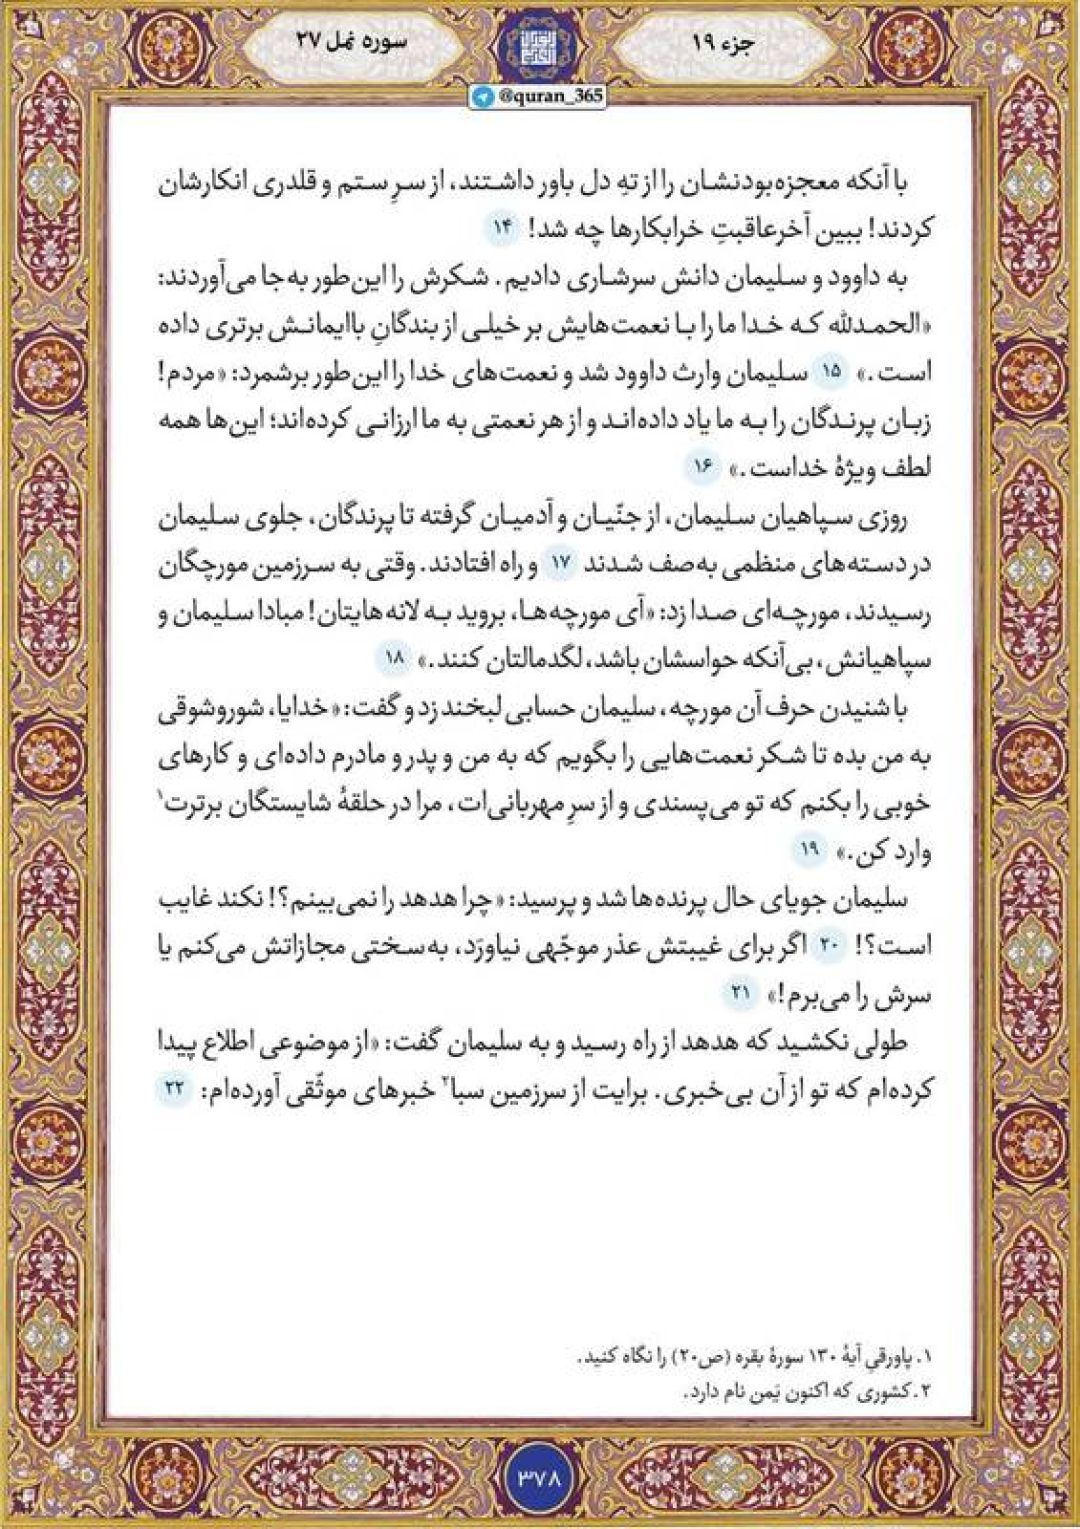 جزء ۱۹
سوره نمل ۲۷
@quran_365
با آنکه معجزه‌بودنشان را از تهِ دل باور داشتند، از سرِ ستم و قلدری انکارشان
کردند! ببین آخرعاقبتِ خرابکارها چه شد! ۱۴
به داوود و سلیمان دانش سرشاری دادیم. شکرش را این‌طور به‌جا می‌آوردند:
«الحمدلله که خدا ما را با نعمت‌هایش بر خیلی از بندگانِ باایمانش برتری داده
است.» ۱۵ سلیمان وارث داوود شد و نعمت‌های خدا را این‌طور برشمرد: «مردم!
زبان پرندگان را به ما یاد داده‌اند و از هر نعمتی به ما ارزانی کرده‌اند؛ این‌ها همه
لطف ویژهٔ خداست.» ۱۶
روزی سپاهیان سلیمان، از جنّیان و آدمیان گرفته تا پرندگان، جلوی سلیمان
در دسته‌های منظمی به‌صف شدند ۱۷ و راه افتادند. وقتی به سرزمین مورچگان
رسیدند، مورچه‌ای صدا زد: «آی مورچه‌ها، بروید به لانه‌هایتان! مبادا سلیمان و
سپاهیانش، بی‌آنکه حواسشان باشد، لگدمالتان کنند.» ۱۸
با شنیدن حرف آن مورچه، سلیمان حسابی لبخند زد و گفت: «خدایا، شوروشوقی
به من بده تا شکر نعمت‌هایی را بگویم که به من و پدر و مادرم داده‌ای و کارهای
خوبی را بکنم که تو می‌پسندی و از سرِ مهربانی‌ات، مرا در حلقهٔ شایستگان برترت۱
وارد کن.» ۱۹
سلیمان جویای حال پرنده‌ها شد و پرسید: «چرا هدهد را نمی‌بینم؟! نکند غایب
است؟! ۲۰ اگر برای غیبتش عذر موجّهی نیاورَد، به‌سختی مجازاتش می‌کنم یا
سرش را می‌برم!» ۲۱
طولی نکشید که هدهد از راه رسید و به سلیمان گفت: «از موضوعی اطلاع پیدا
کرده‌ام که تو از آن بی‌خبری. برایت از سرزمین سبا۲ خبرهای موثّقی آورده‌ام: ۲۲
۱. پاورقیِ آیهٔ ۱۳۰ سورهٔ بقره (ص۲۰) را نگاه کنید.
۲. کشوری که اکنون یَمن نام دارد.
۳۷۸